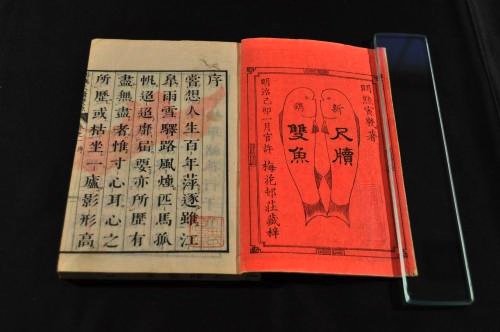 明熊寅幾著
新
尺牘
鐫
雙魚
明治己卯一月官許 梅花邨莊藏梓
序
嘗想人生百年萍逐雖江
皐雨雪驛路風煙匹馬孤
帆迢迢靡屆要亦所歷有
盡無盡者惟寸心耳心之
所歷或枯坐一廬影形高